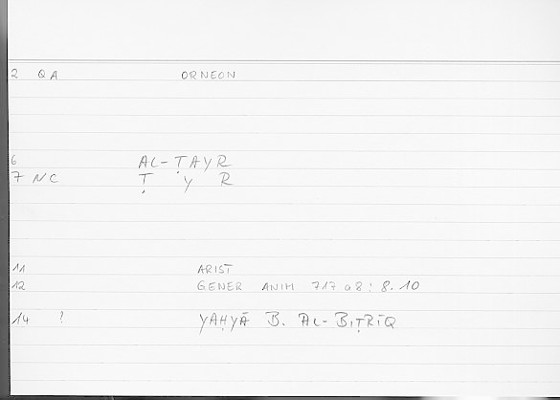 2 QA ORNEON
6 AL-ṬAYR
7 NC Ṭ Y R
11 ARIST
12 GENER ANIM 717 a8 : 8.10
14 ? YAḤYĀ B. AL-BIṬRĪQ